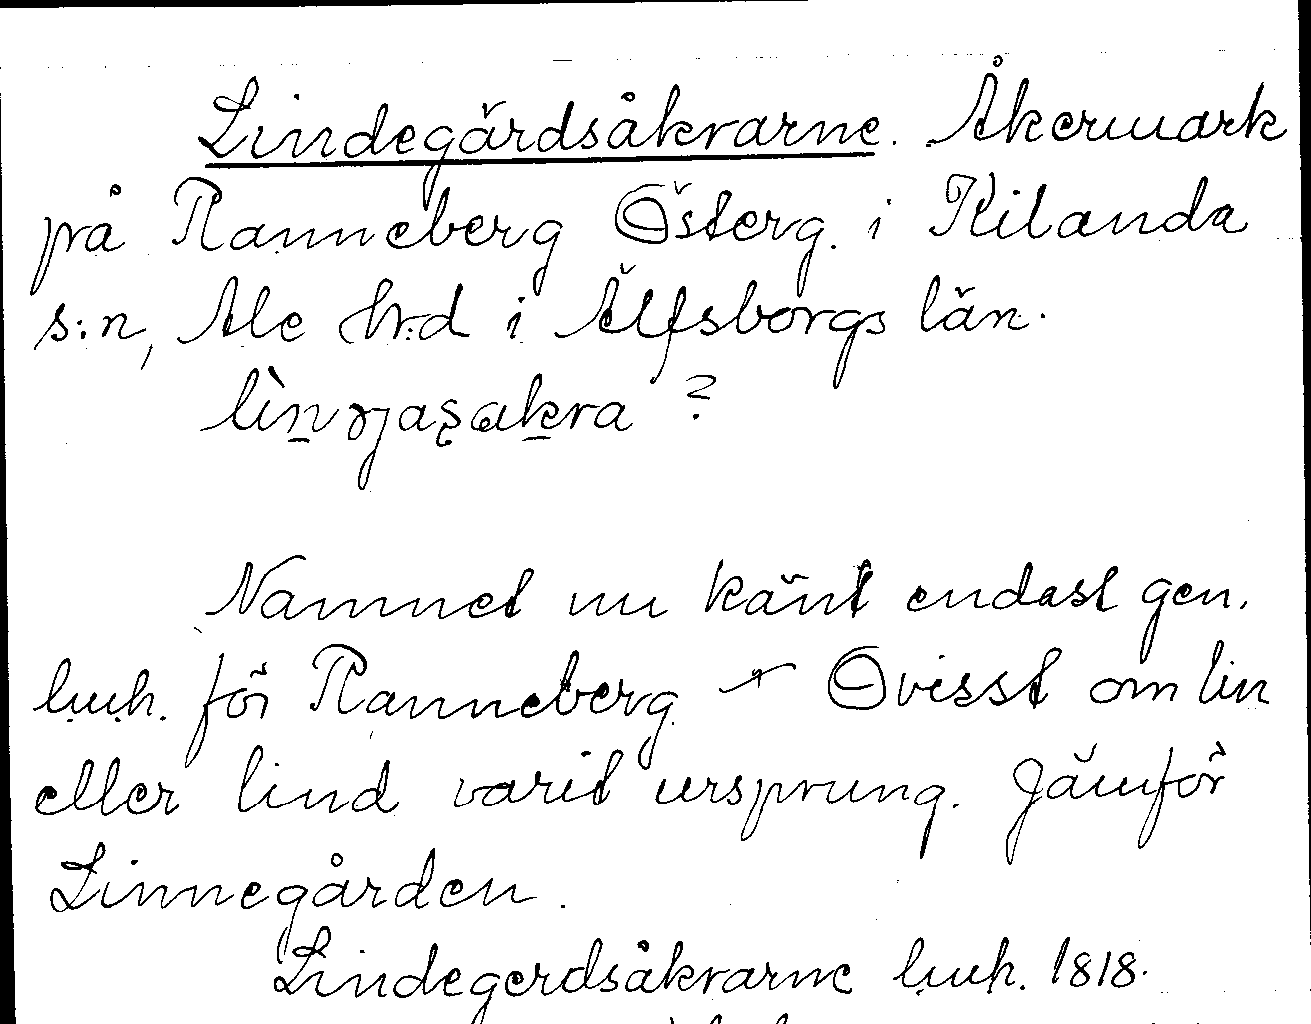 Lindegärdsåkrarne. Åkermark
på Ranneberg Österg. i Kilanda
s:n, Ale hr:d i Älfsborgs län.
?
Namnet nu känt endast gen.
lmh. för Ranneberg Ovisst om lin
eller lind varit ursprung. Jämför
Linnegården.
Lindegerdsåkrarne lmh. 1818.